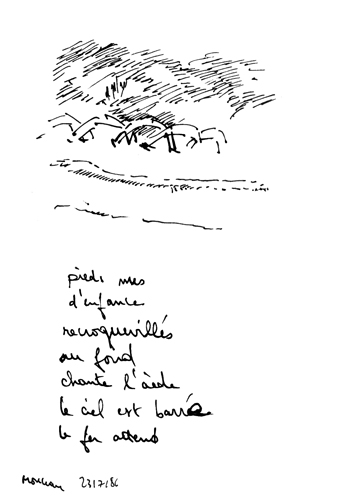 pieds nus
d'enfance
recroquevillés
au fond
chante l'aède
le ciel est barré
le feu attend
23/7/86